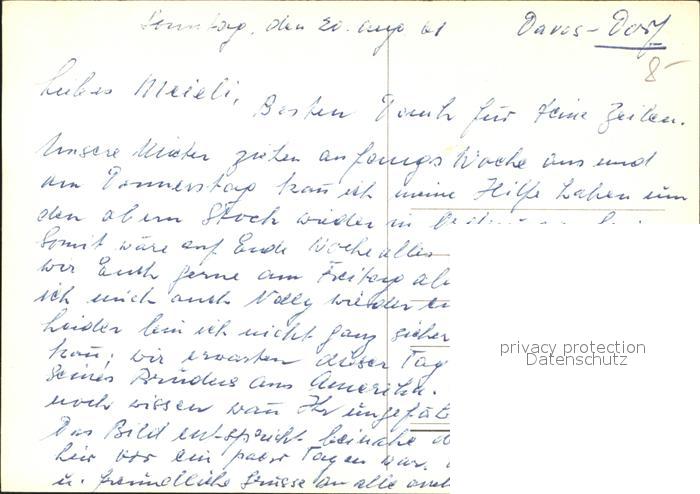 Sonntag, den 20. Aug 61 Davos-Dorf
8-
Liebes Meieli,
Besten Dank für Deine Zeilen.
Unsere Mieter ziehen anfangs Woche aus und
am Donnerstag kañ ich meine Hilfe haben um
den obern Stock wieder in
Somit wäre auf Ende Woche alles
wir Euch gerne am Freitag ab
ich mich auch Nelly wieder
Leider bin ich nicht ganz sicher
kañ, wir erwarten dieser Tag
Seines Bruders aus Amerika.
noch wissen wañ Ihr ungefäh
Das Bild entspricht beinahe d
hier vor ein paar Tagen war.
u. freundliche Grüsse an alle auch
privacy protection
Datenschutz